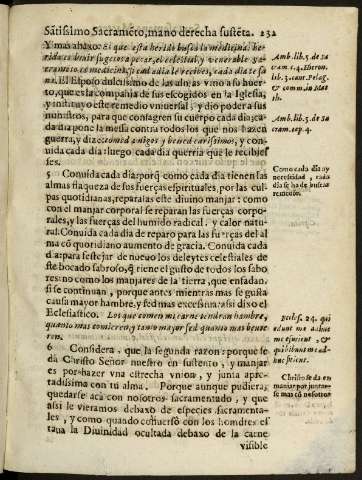 Sãtissimo Sacramēto, mano derecha susieta. 232
Y mas abaxo: Si que esta herida busco la medicina: he-
rida es
El Esposo dulcissimo de las almas vino a su huer-
to, que es la compañia de sus escogidos en la Iglesia,
y instituyo este remedio vniuersal, y dio poder a sus
ministros, para que consagren su cuerpo cada dia: ca-
da dia pone la mesa contra todos los que nos hazen
guerra, y dize: comed amigos y beued carissimos, y con-
uida cada dia: luego cada dia querria que le recibies
ses.
5 Conuida cada dia: porq̃ como cada dia tienen las
almas flaqueza de sus fuerças espirituales, por las cul
pas quotidianas, reparalas este diuino manjar: como
con el manjar corporal se reparan las fuerças corpo-
rales, y las fuerças del humido radical, y calor natu-
ral. Conuida cada dia de reparo para las fuerças del al
ma cõ quotidiano aumento de gracia. Conuida cada
dia: para festejar de nueuo los deleytes celestiales de
este bocado sabroso, q̃ tiene el gusto de todos los sabo
res: no como los manjares de la tierra, que enfadan,
si se continuan, porque antes mientras mas se gusta
causa mayor hambre, y sed mas excessiua: assi dixo el
Eclesiastico. Los que comen mi carne tendran hambre,
quanto mas comieren, y tanto mayor sed quanto mas beuie
ren.
6 Considera, que la segunda razon: porque se
da Christo Señor nuestro en sustento, y manjar
es por hazer vna estrecha vnion, y junta apre-
tadissima con tu alma. Porque aunque pudiera,
quedarse acà con nosotros sacramentado, y que
assi le vieramos debaxo de especies sacramenta-
les, y como quando conuersò con los hombres es
taua la Diuinidad ocultada debaxo de la carne
visible
Amb. lib. 5. de Sa
cram. c. 4. Hieron.
lib. 3. cont. Pelag.
& comm. in Mat
th.
Amb. lib. 5. de Sa
cram. cap. 4.
Como cada dia ay
necessidad, cada
dia se ha de buscar
remedio.
Eccles. 24. qui
edunt me adhuc
me esurient, &
qui bibunt me ad-
huc sitient.
Christo se da en
manjar por juntar-
se mas cõ nosotros